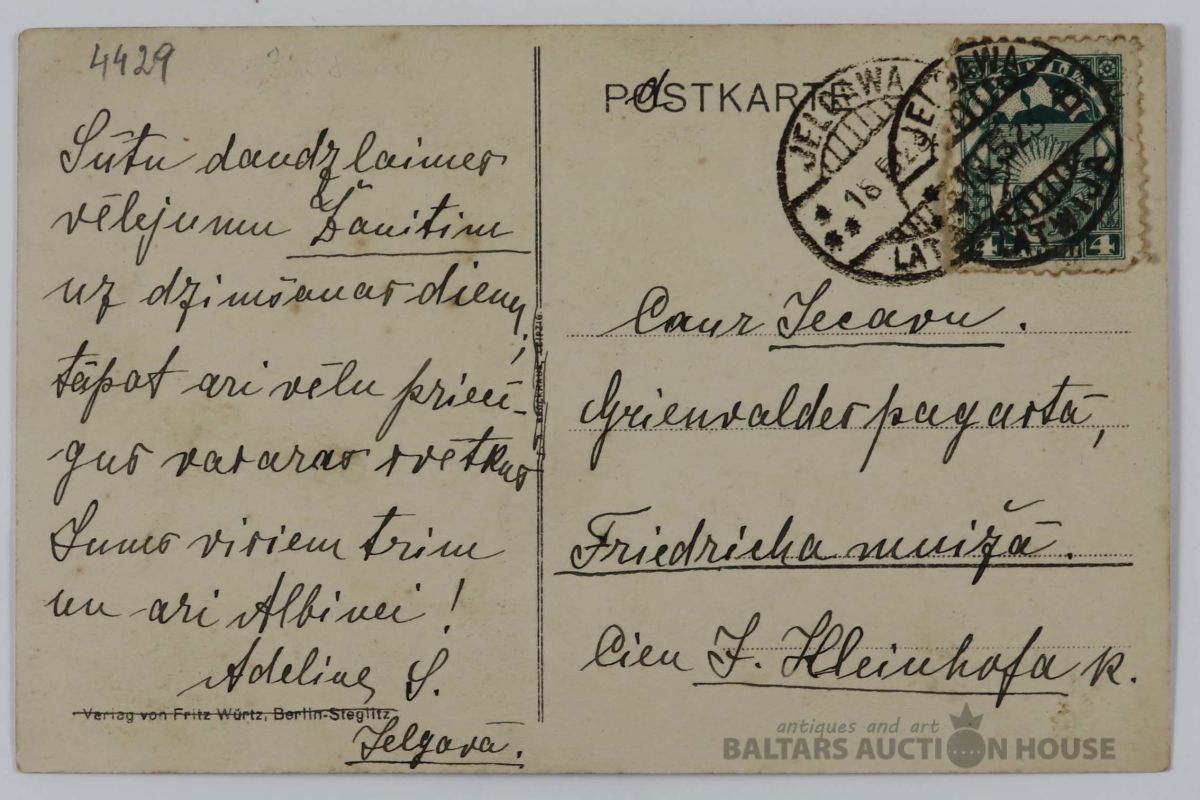 4429
Sūtu daudz laimes
vēlejumu Žanitim
uz dzimšanas dienu,
tāpat ari vēlu priecī-
gus vasaras svētkus
Jums visiem trim
un ari Albinei!
Adeline S.
Jelgavā.
Verlag von Fritz Würtz, Berlin-Steglitz
POSTKARTE
JELGAWA
18 5 23
LATWIJA
JELGAWA
18 5 23
LATWIJA
4 4
Caur Jecavu.
Grienvaldes pagastā,
Friedricha muižā.
Cien J. Kleinhofa k.
antiques and art
BALTARS AUCTION HOUSE